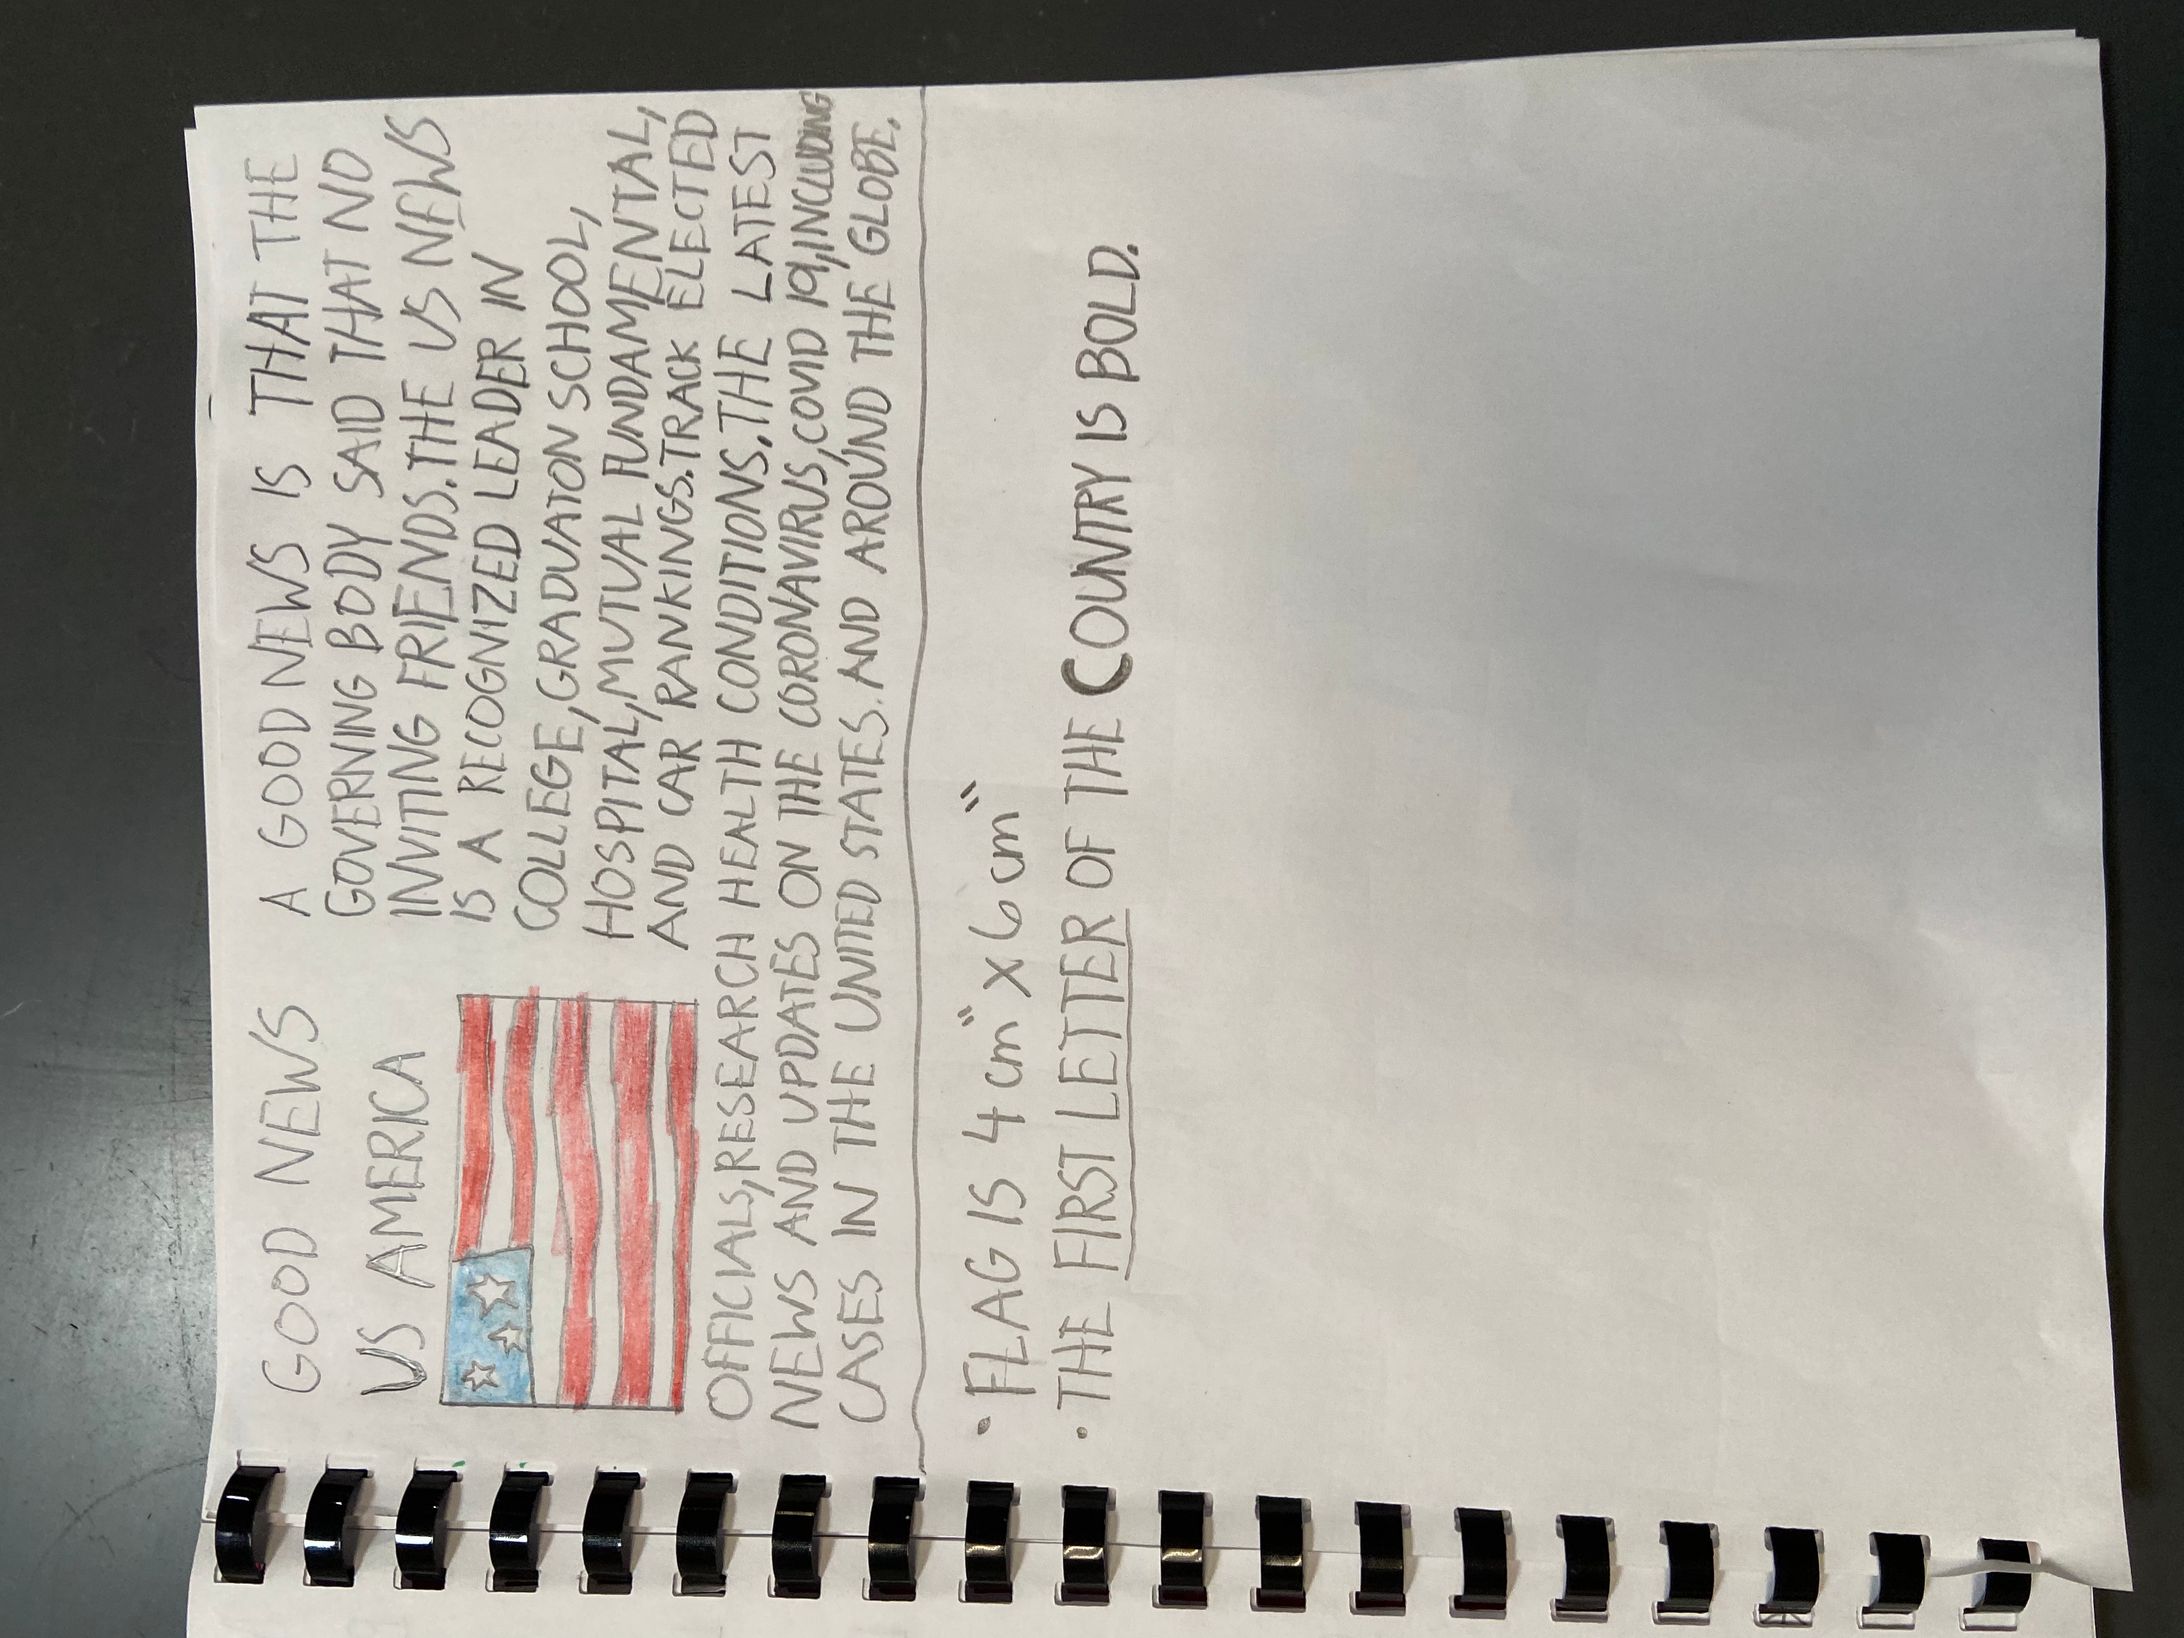 GOOD NEWS
US AMERICA
A GOOD NEWS IS THAT THE
GOVERNING BODY SAID THAT NO
INVITING FRIENDS. THE US NEWS
IS A RECOGNIZED LEADER IN
COLLEGE, GRADUATON SCHOOL,
HOSPITAL, MUTUAL FUNDAMENTAL,
AND CAR RANKINGS. TRACK ELECTED
OFFICIALS, RESEARCH HEALTH CONDITIONS, THE LATEST
NEWS AND UPDATES ON THE CORONAVIRUS, COVID 19, INCLUDING
CASES IN THE UNITED STATES. AND AROUND THE GLOBE.
• FLAG IS 4 cm" X 6 cm"
• THE FIRST LETTER OF THE COUNTRY IS BOLD.